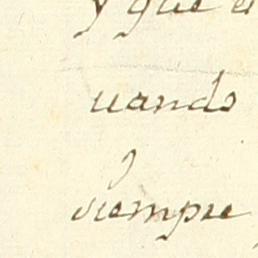 y que e
uando
siempre